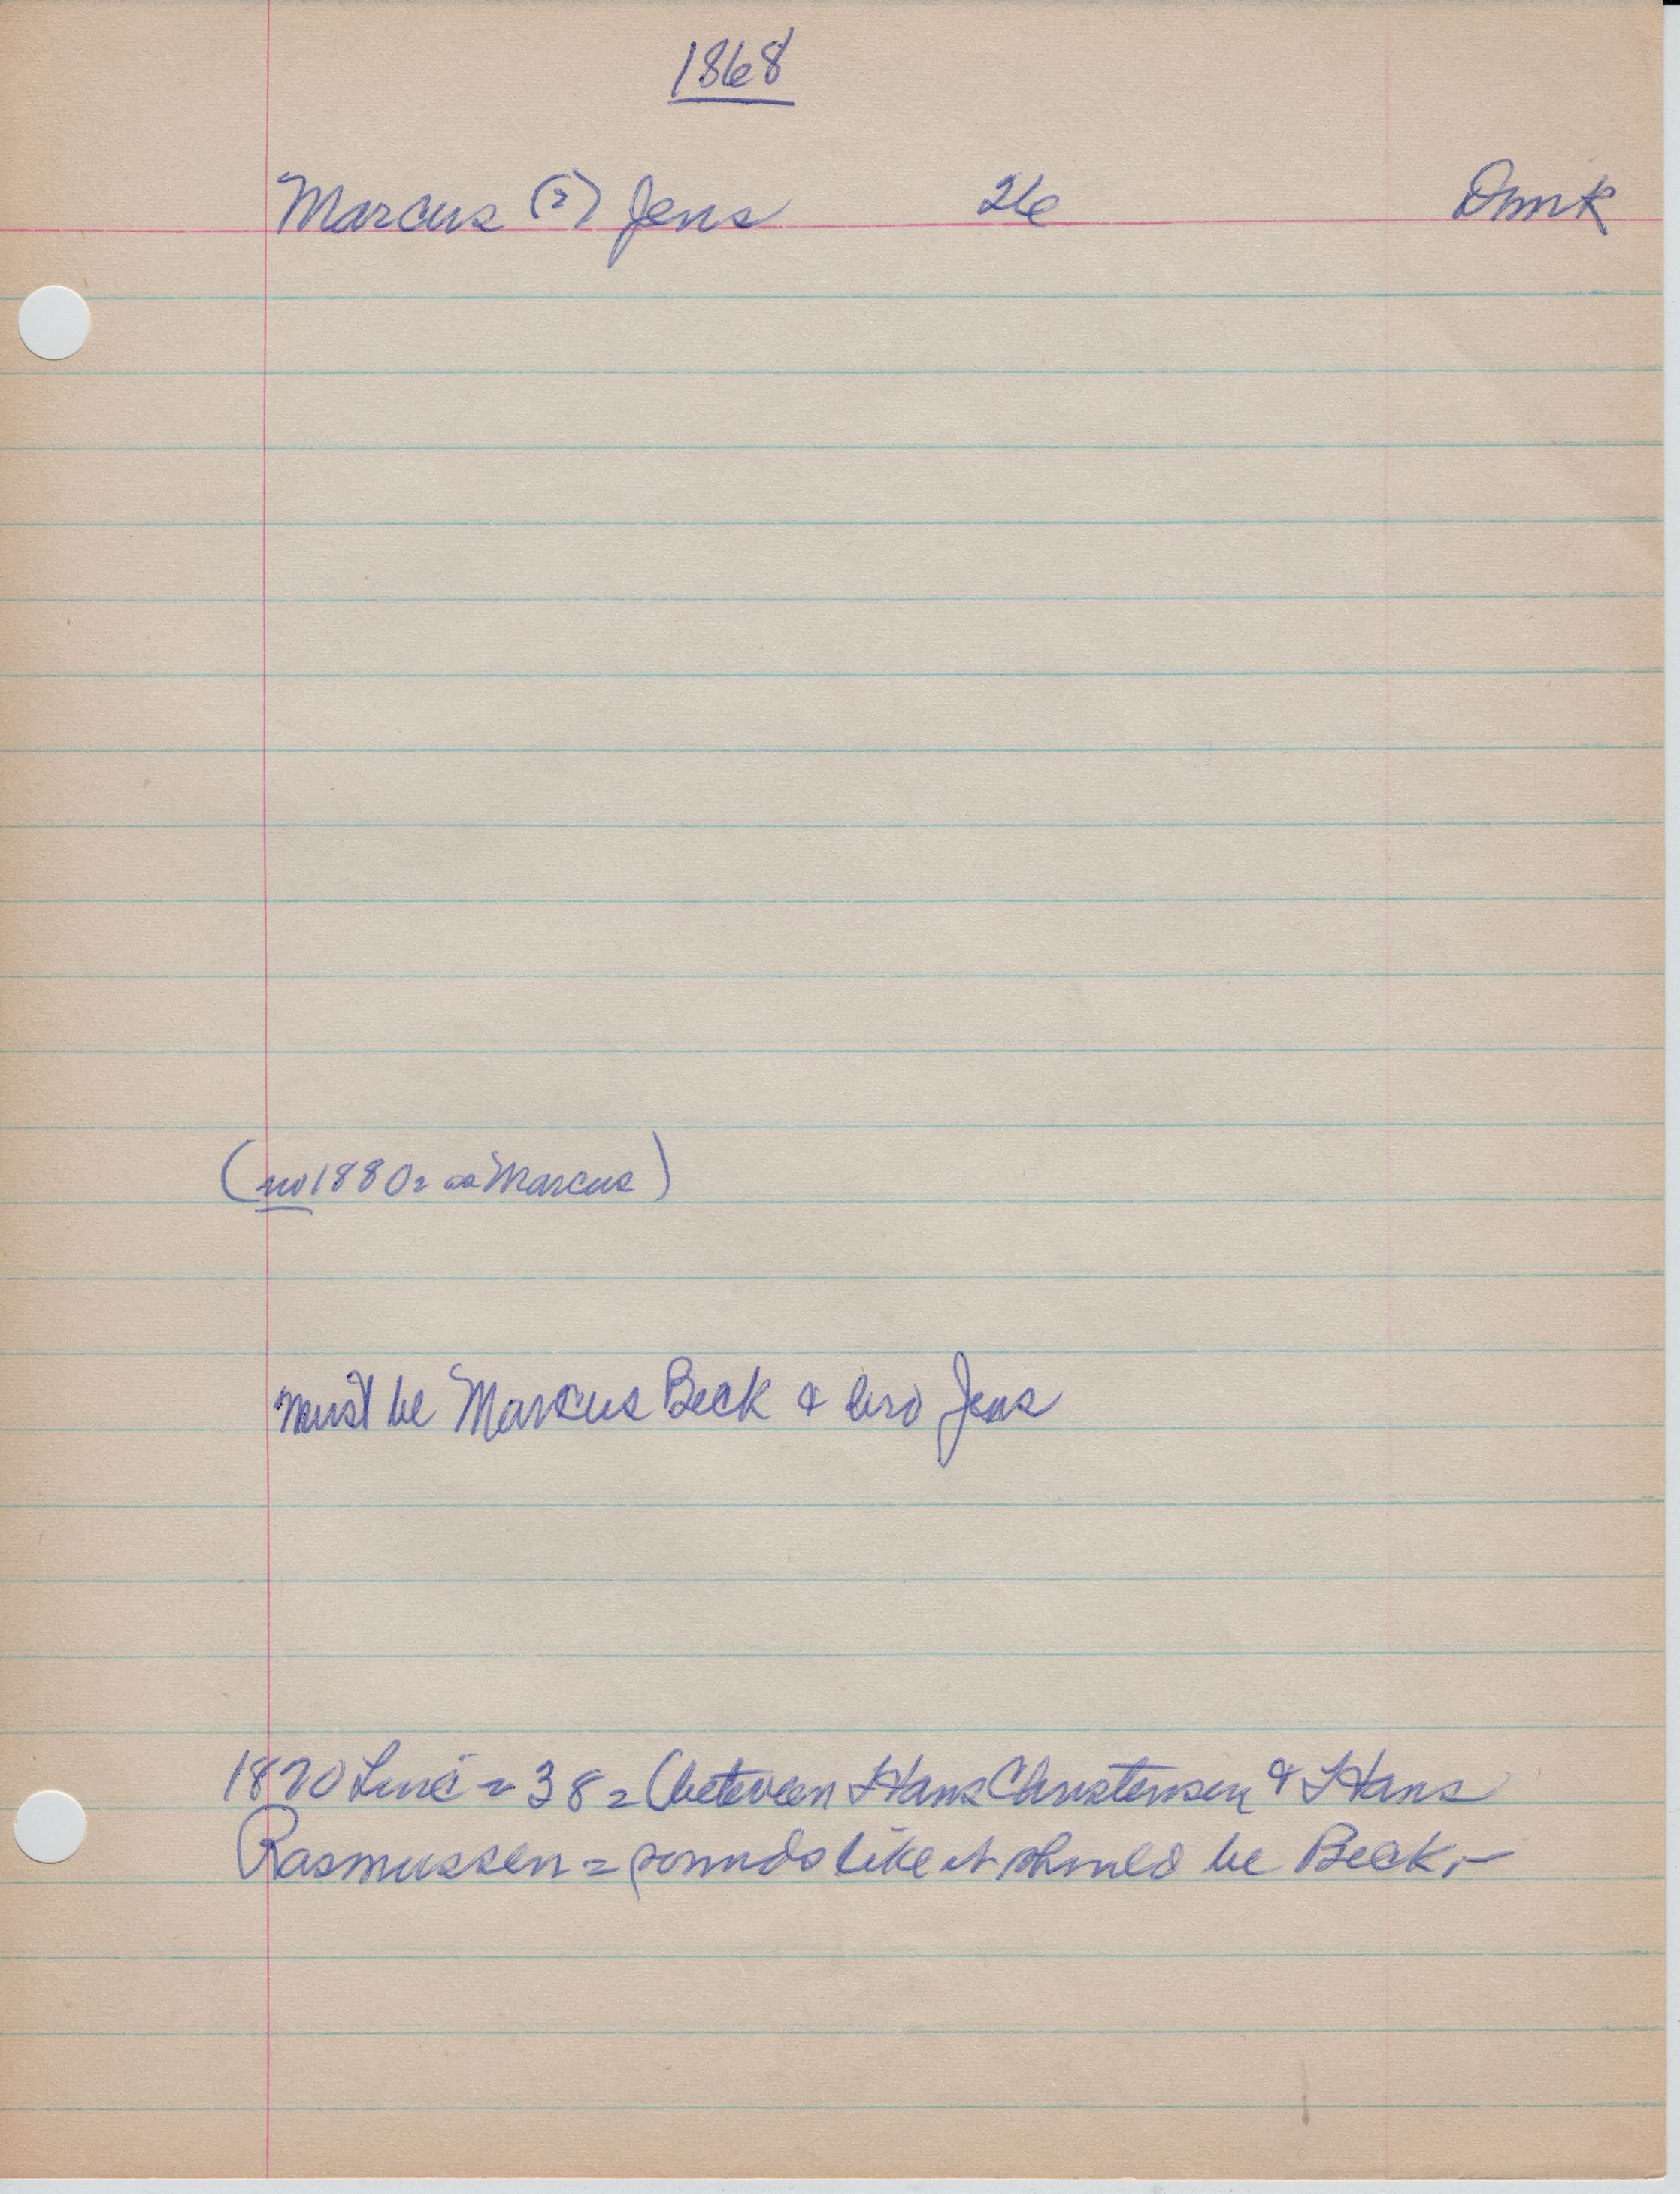 1868
Marcus (?) Jens 26 Dmk
(no 1880 = as Marcus)
must be Marcus Beck & bro Jens
1870 Line = 38 = (between Hans Christensen & Hans
Rasmussen = sounds like it should be Beck. -